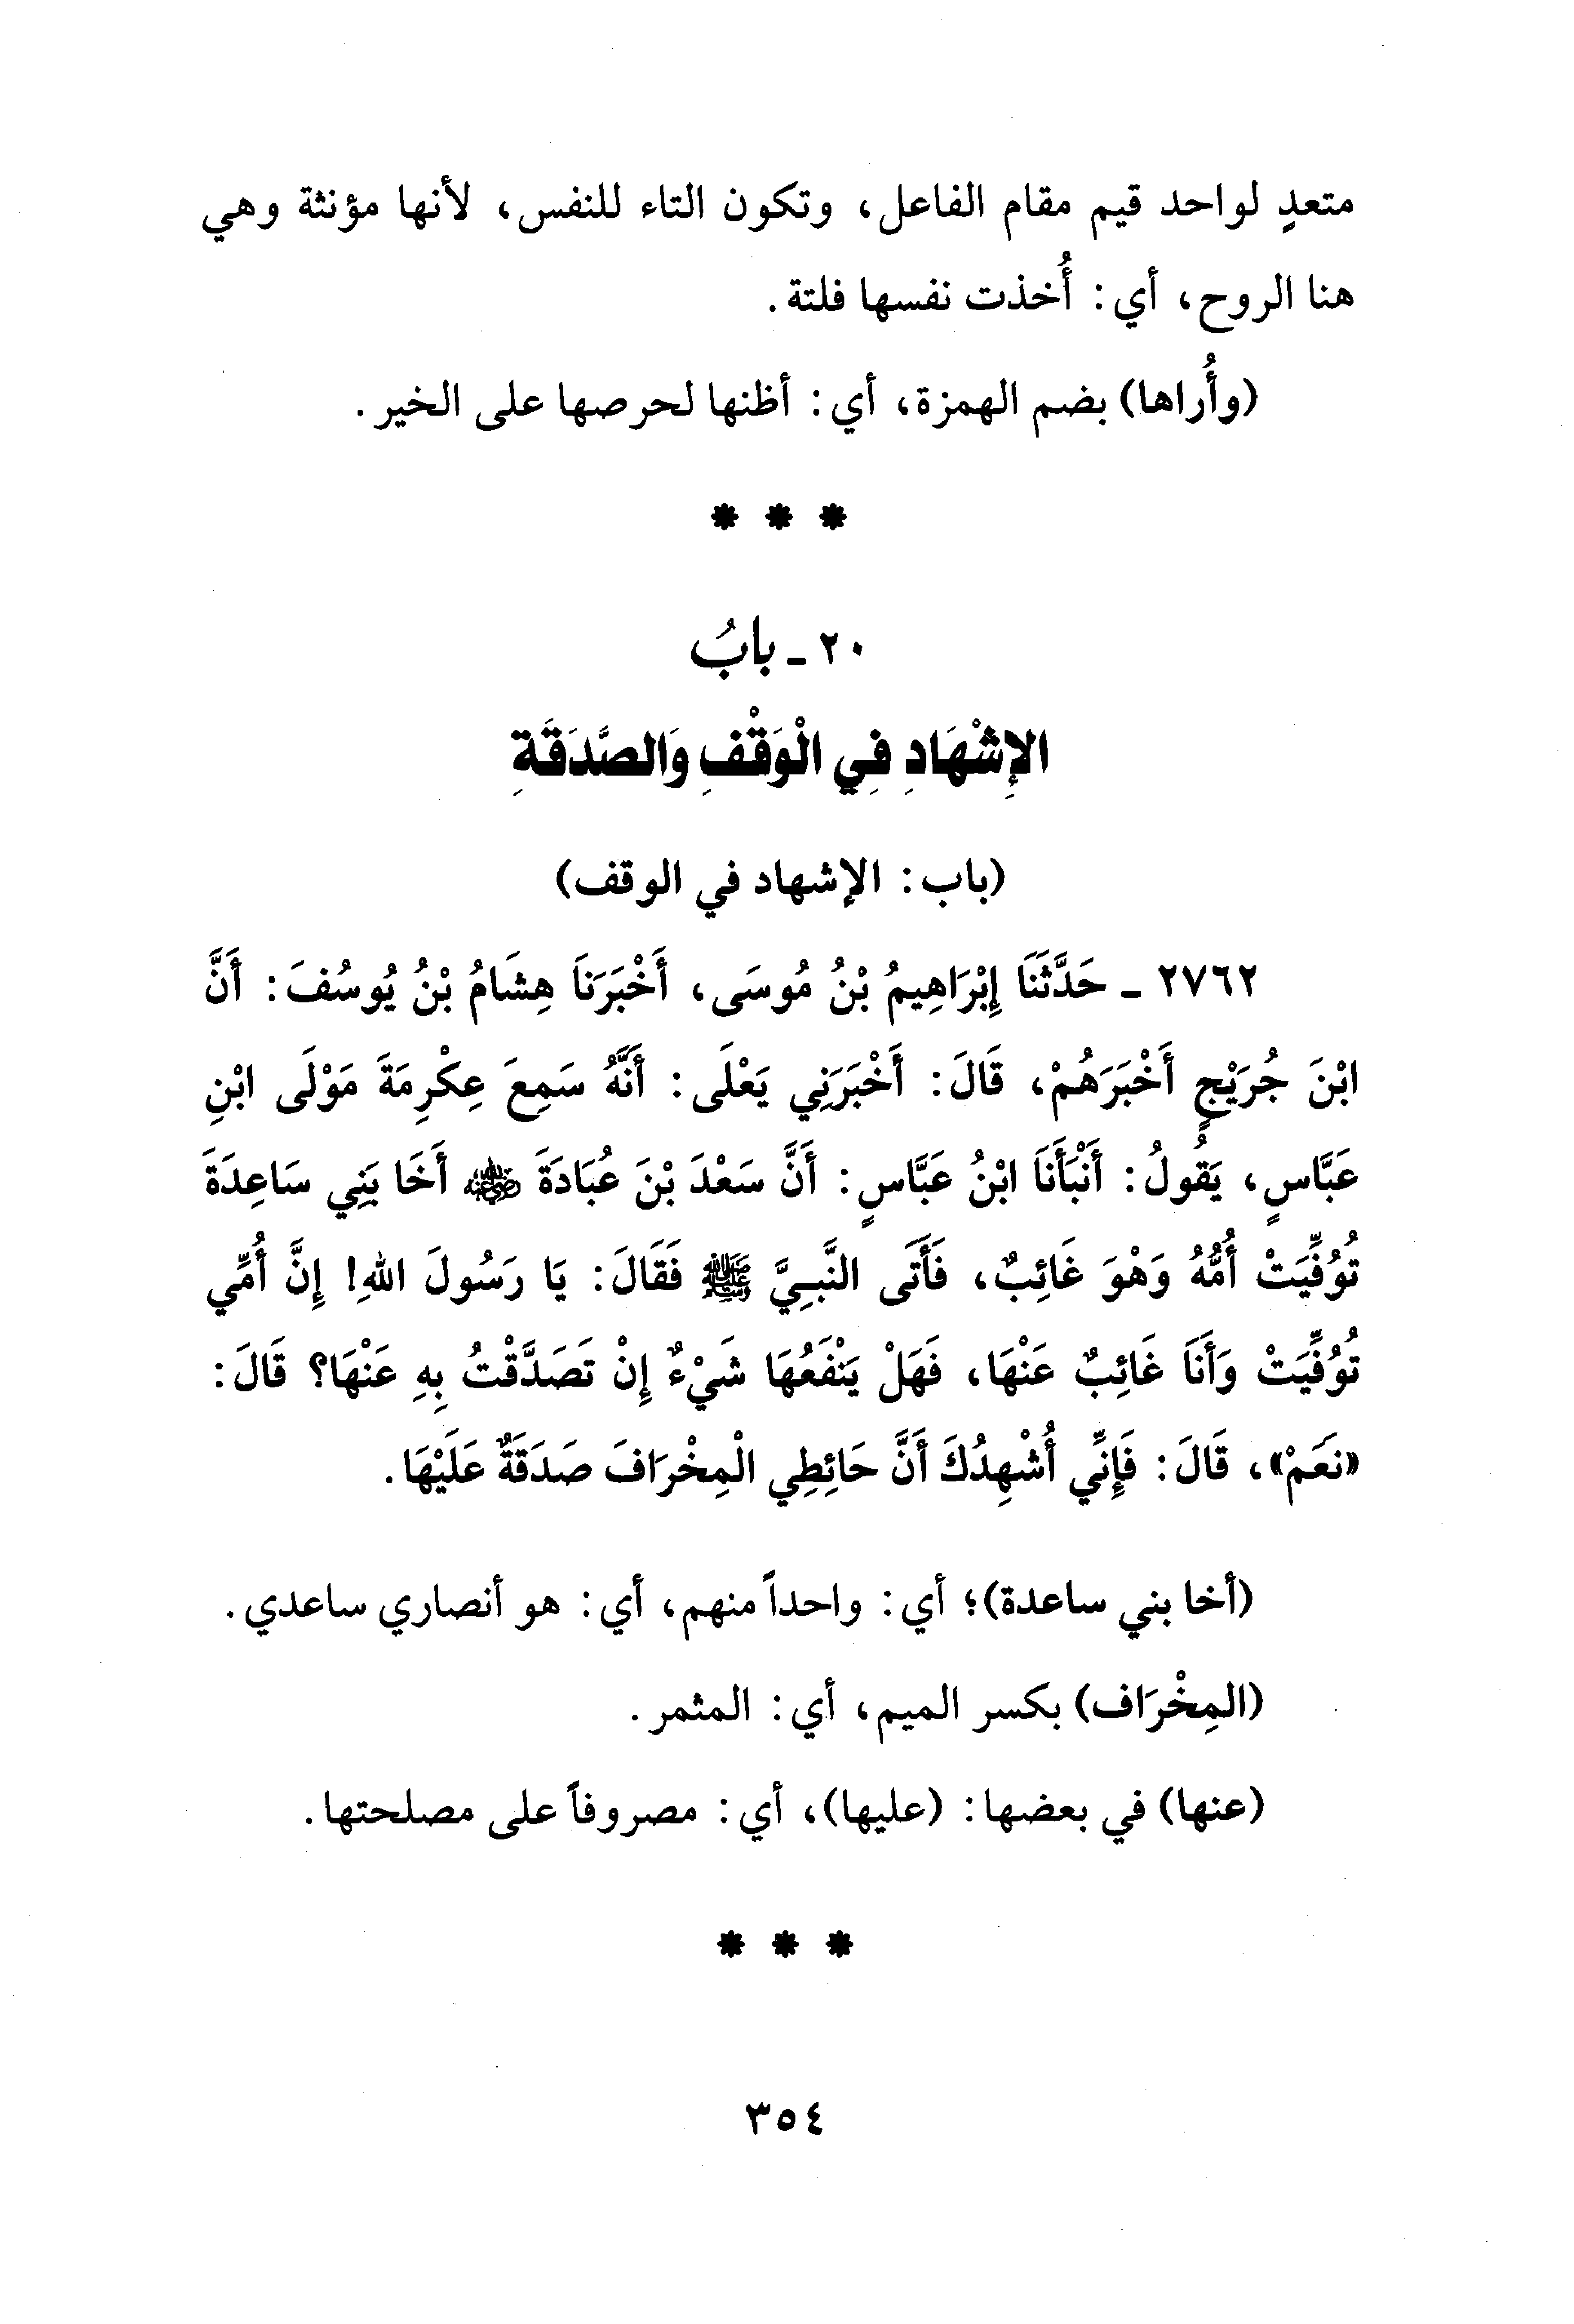 متعدٍ لواحد قيم مقام الفاعل، وتكون التاء للنفس، لأنها مؤنثة وهي
هنا الروح، أي: أُخذت نفسها فلتة.
(وأُراها) بضم الهمزة، أي: أظنها لحرصها على الخير.
* * *
٢٠ - بابُ
الإِشْهَادِ فِي الْوَقْفِ وَالصَّدَقَةِ
(باب: الإشهاد في الوقف)
٢٧٦٢ - حَدَّثَنَا إِبْرَاهِيمُ بْنُ مُوسَى، أَخْبَرَنَا هِشَامُ بْنُ يُوسُفَ: أَنَّ
ابْنَ جُرَيْجٍ أَخْبَرَهُمْ، قَالَ: أَخْبَرَنِي يَعْلَى: أَنَّهُ سَمِعَ عِكْرِمَةَ مَوْلَى ابْنِ
عَبَّاسٍ، يَقُولُ: أَنْبَأَنَا ابْنُ عَبَّاسٍ: أَنَّ سَعْدَ بْنَ عُبَادَةَ رضي الله عنه أَخَا بَنِي سَاعِدَةَ
تُوُفِّيَتْ أُمُّهُ وَهْوَ غَائِبٌ، فَأَتَى النَّبِيَّ ﷺ فَقَالَ: يَا رَسُولَ اللهِ! إِنَّ أُمِّي
تُوُفِّيَتْ وَأَنَا غَائِبٌ عَنْهَا، فَهَلْ يَنْفَعُهَا شَيْءٌ إِنْ تَصَدَّقْتُ بِهِ عَنْهَا؟ قَالَ:
«نَعَمْ»، قَالَ: فَإِنِّي أُشْهِدُكَ أَنَّ حَائِطِي الْمِخْرَافَ صَدَقَةٌ عَلَيْهَا.
(أخا بني ساعدة)؛ أي: واحداً منهم، أي: هو أنصاري ساعدي.
(المِخْرَاف) بكسر الميم، أي: المثمر.
(عنها) في بعضها: (عليها)، أي: مصروفاً على مصلحتها.
* * *
٣٥٤